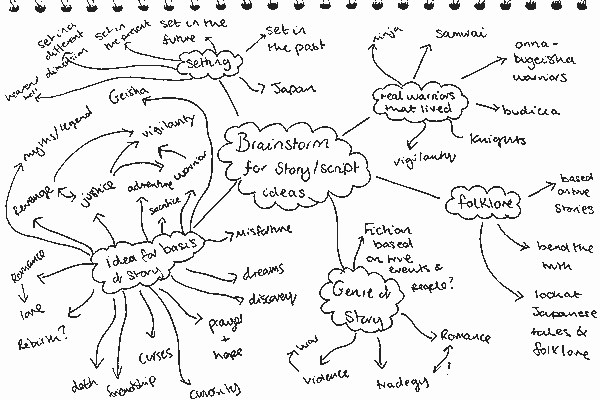 Brainstorm
for Story/script
ideas
setting
set in a
different
dimension
set in
the present
set in the
future
set in
the past
Japan
real warriors
that lived
ninja
samurai
onna-
bugeisha
warriors
budicca
knights
vigilanty
folklore
based
on true
stories
bend the
truth
look at
Japanese
tales &
folklore
Genre of
Story
Fiction
based
on true
events &
people?
Romance
!
tradegy
violence
war
idea for basis
of story
Geisha
myths/legend
vigilanty
Revenge
justice
adventure
warrior
sacrifice
misfortune
dreams
discovery
prayer
+
hope
curiosity
curses
friendship
death
Rebirth?
Romance
love